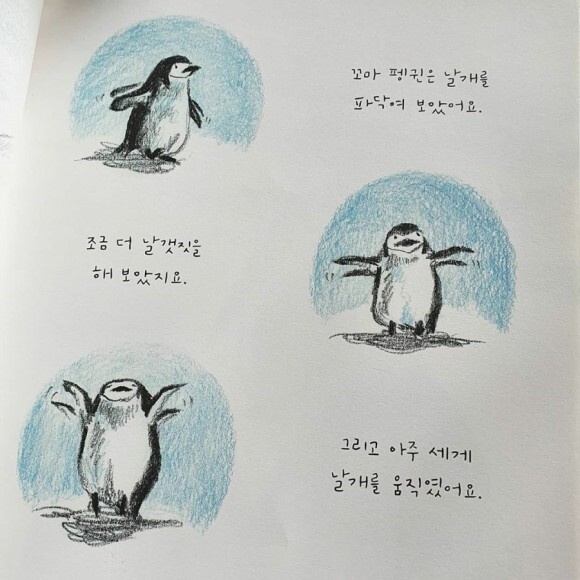 꼬마 펭귄은 날개를
파닥여 보았어요.
조금 더 날갯짓을
해 보았지요.
그리고 아주 세게
날개를 움직였어요.